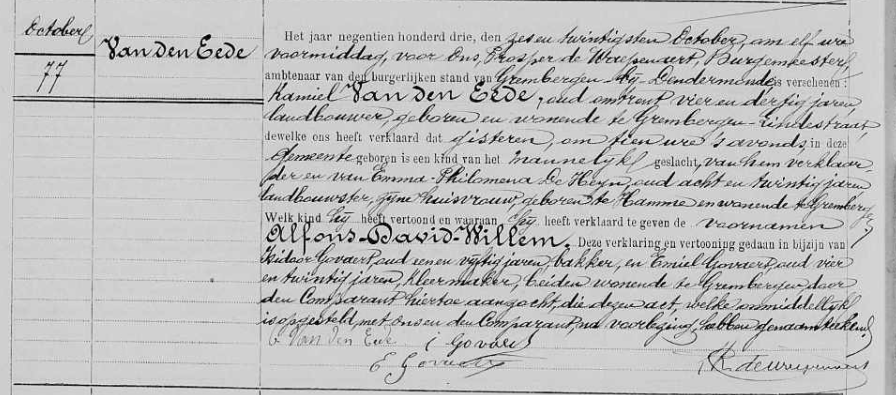 October
77
Van den Eede
Het jaar negentien honderd drie, den zes en twintigsten October, om elf ure
voormiddag, voor Ons, Prosper de Waepenaert, Burgemeester,
ambtenaar van den burgerlijken stand van Grembergen by Dendermonde is verschenen:
Kamiel Van den Eede, oud omtrent vier en dertig jaren
landbouwer, geboren en wonende te Grembergen-Lindestraat,
dewelke ons heeft verklaard dat gisteren, om tien ure 's avonds, in deze
Gemeente geboren is een kind van het mannelyk geslacht, van hem verklaar-
der en van Emma-Philomena De Heyn, oud acht en twintig jaren
landbouwster, zyne huisvrouw, geboren te Hamme en wonende te Grembergen
Welk kind hij heeft vertoond en waaraan hij heeft verklaard te geven de voornamen
Alfons-David-Willem. Deze verklaring en vertooning gedaan in bijzijn van
Isidoor Govaert, oud een en vyftig jaren, bakker, en Emiel Govaers, oud vier
en twintig jaren, Kleermaker, beiden wonende te Grembergen, door
den Comparant hiertoe aangezocht, die dezen act, welke onmiddelyk
is opgesteld, met ons en den Comparant, na voorlezing, hebben genaamteekend
Van den Eede I Govaers
E Govaers